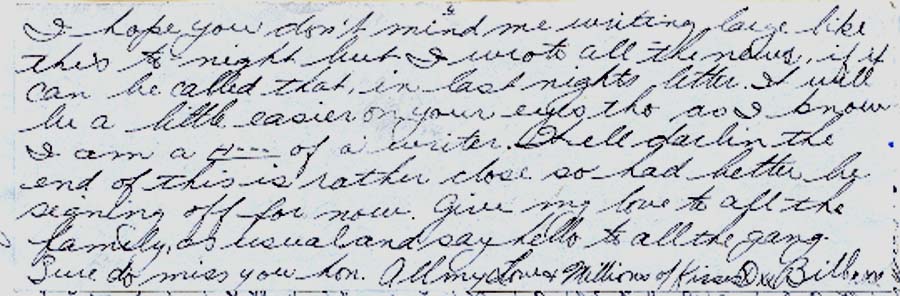 I hope you don't mind me writing large like
this to night but I wrote all the news, if it
can be called that, in last nights letter. It will
be a little easier on your eyes tho as I know
I am a of a writer. Well darlin the
end of this is rather close so had better be
signing off for now. Give my love to all the
family, as usual and say hello to all the gang.
Sure do miss you hon. All my Love & Millions of Kisses Bill